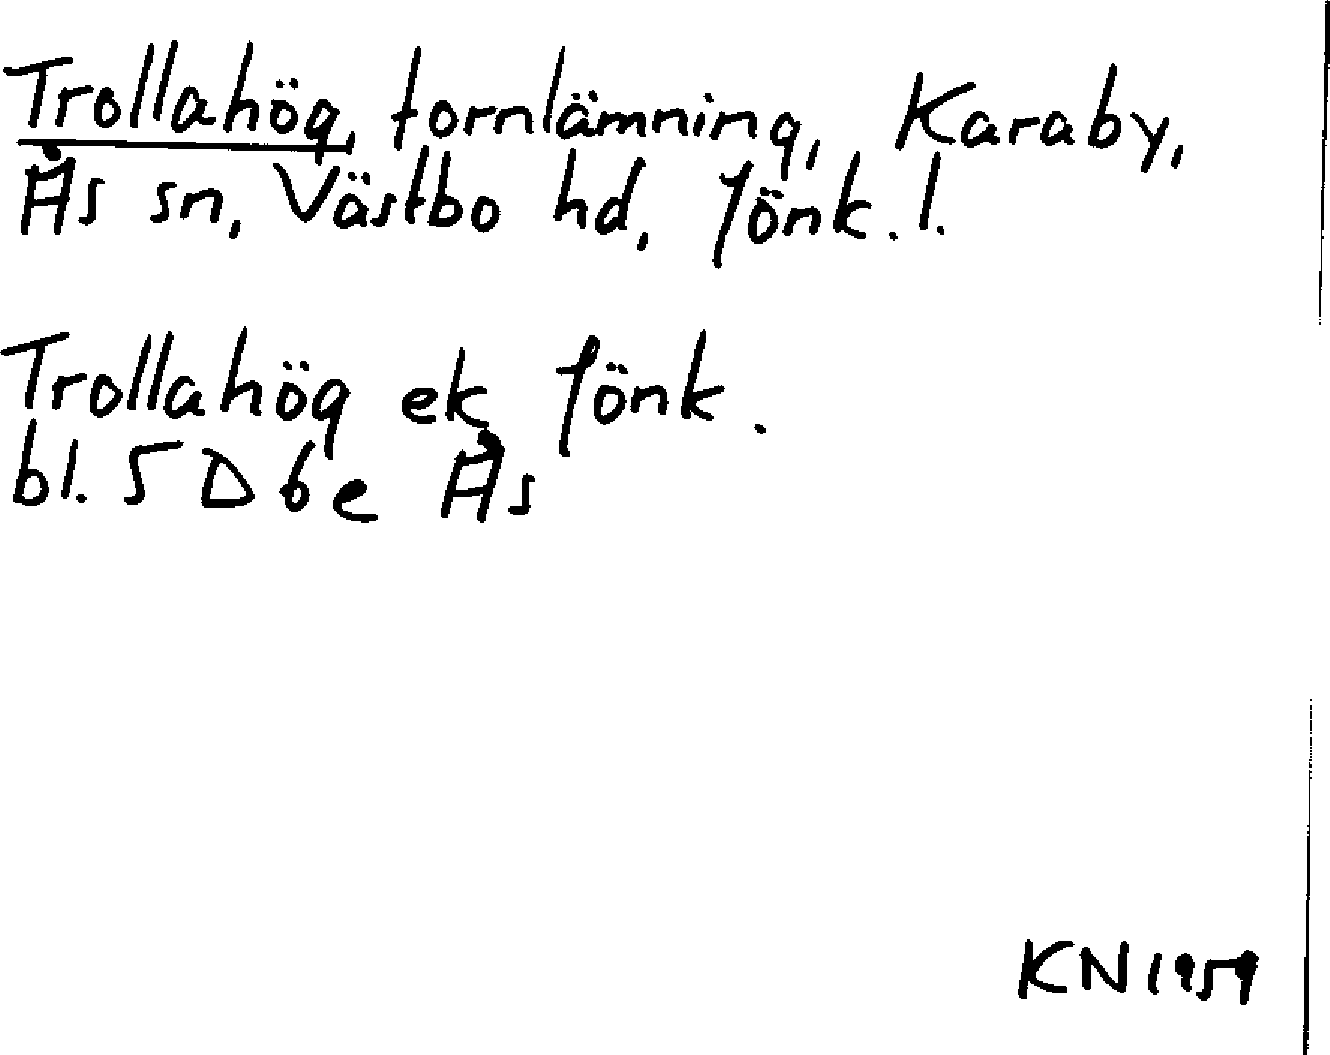 Trollahög, fornlämning, Karaby,
Ås sn, Västbo hd, Jönk. l.
Trollahög ek Jönk.
bl. 5D6e Ås
KN 1959